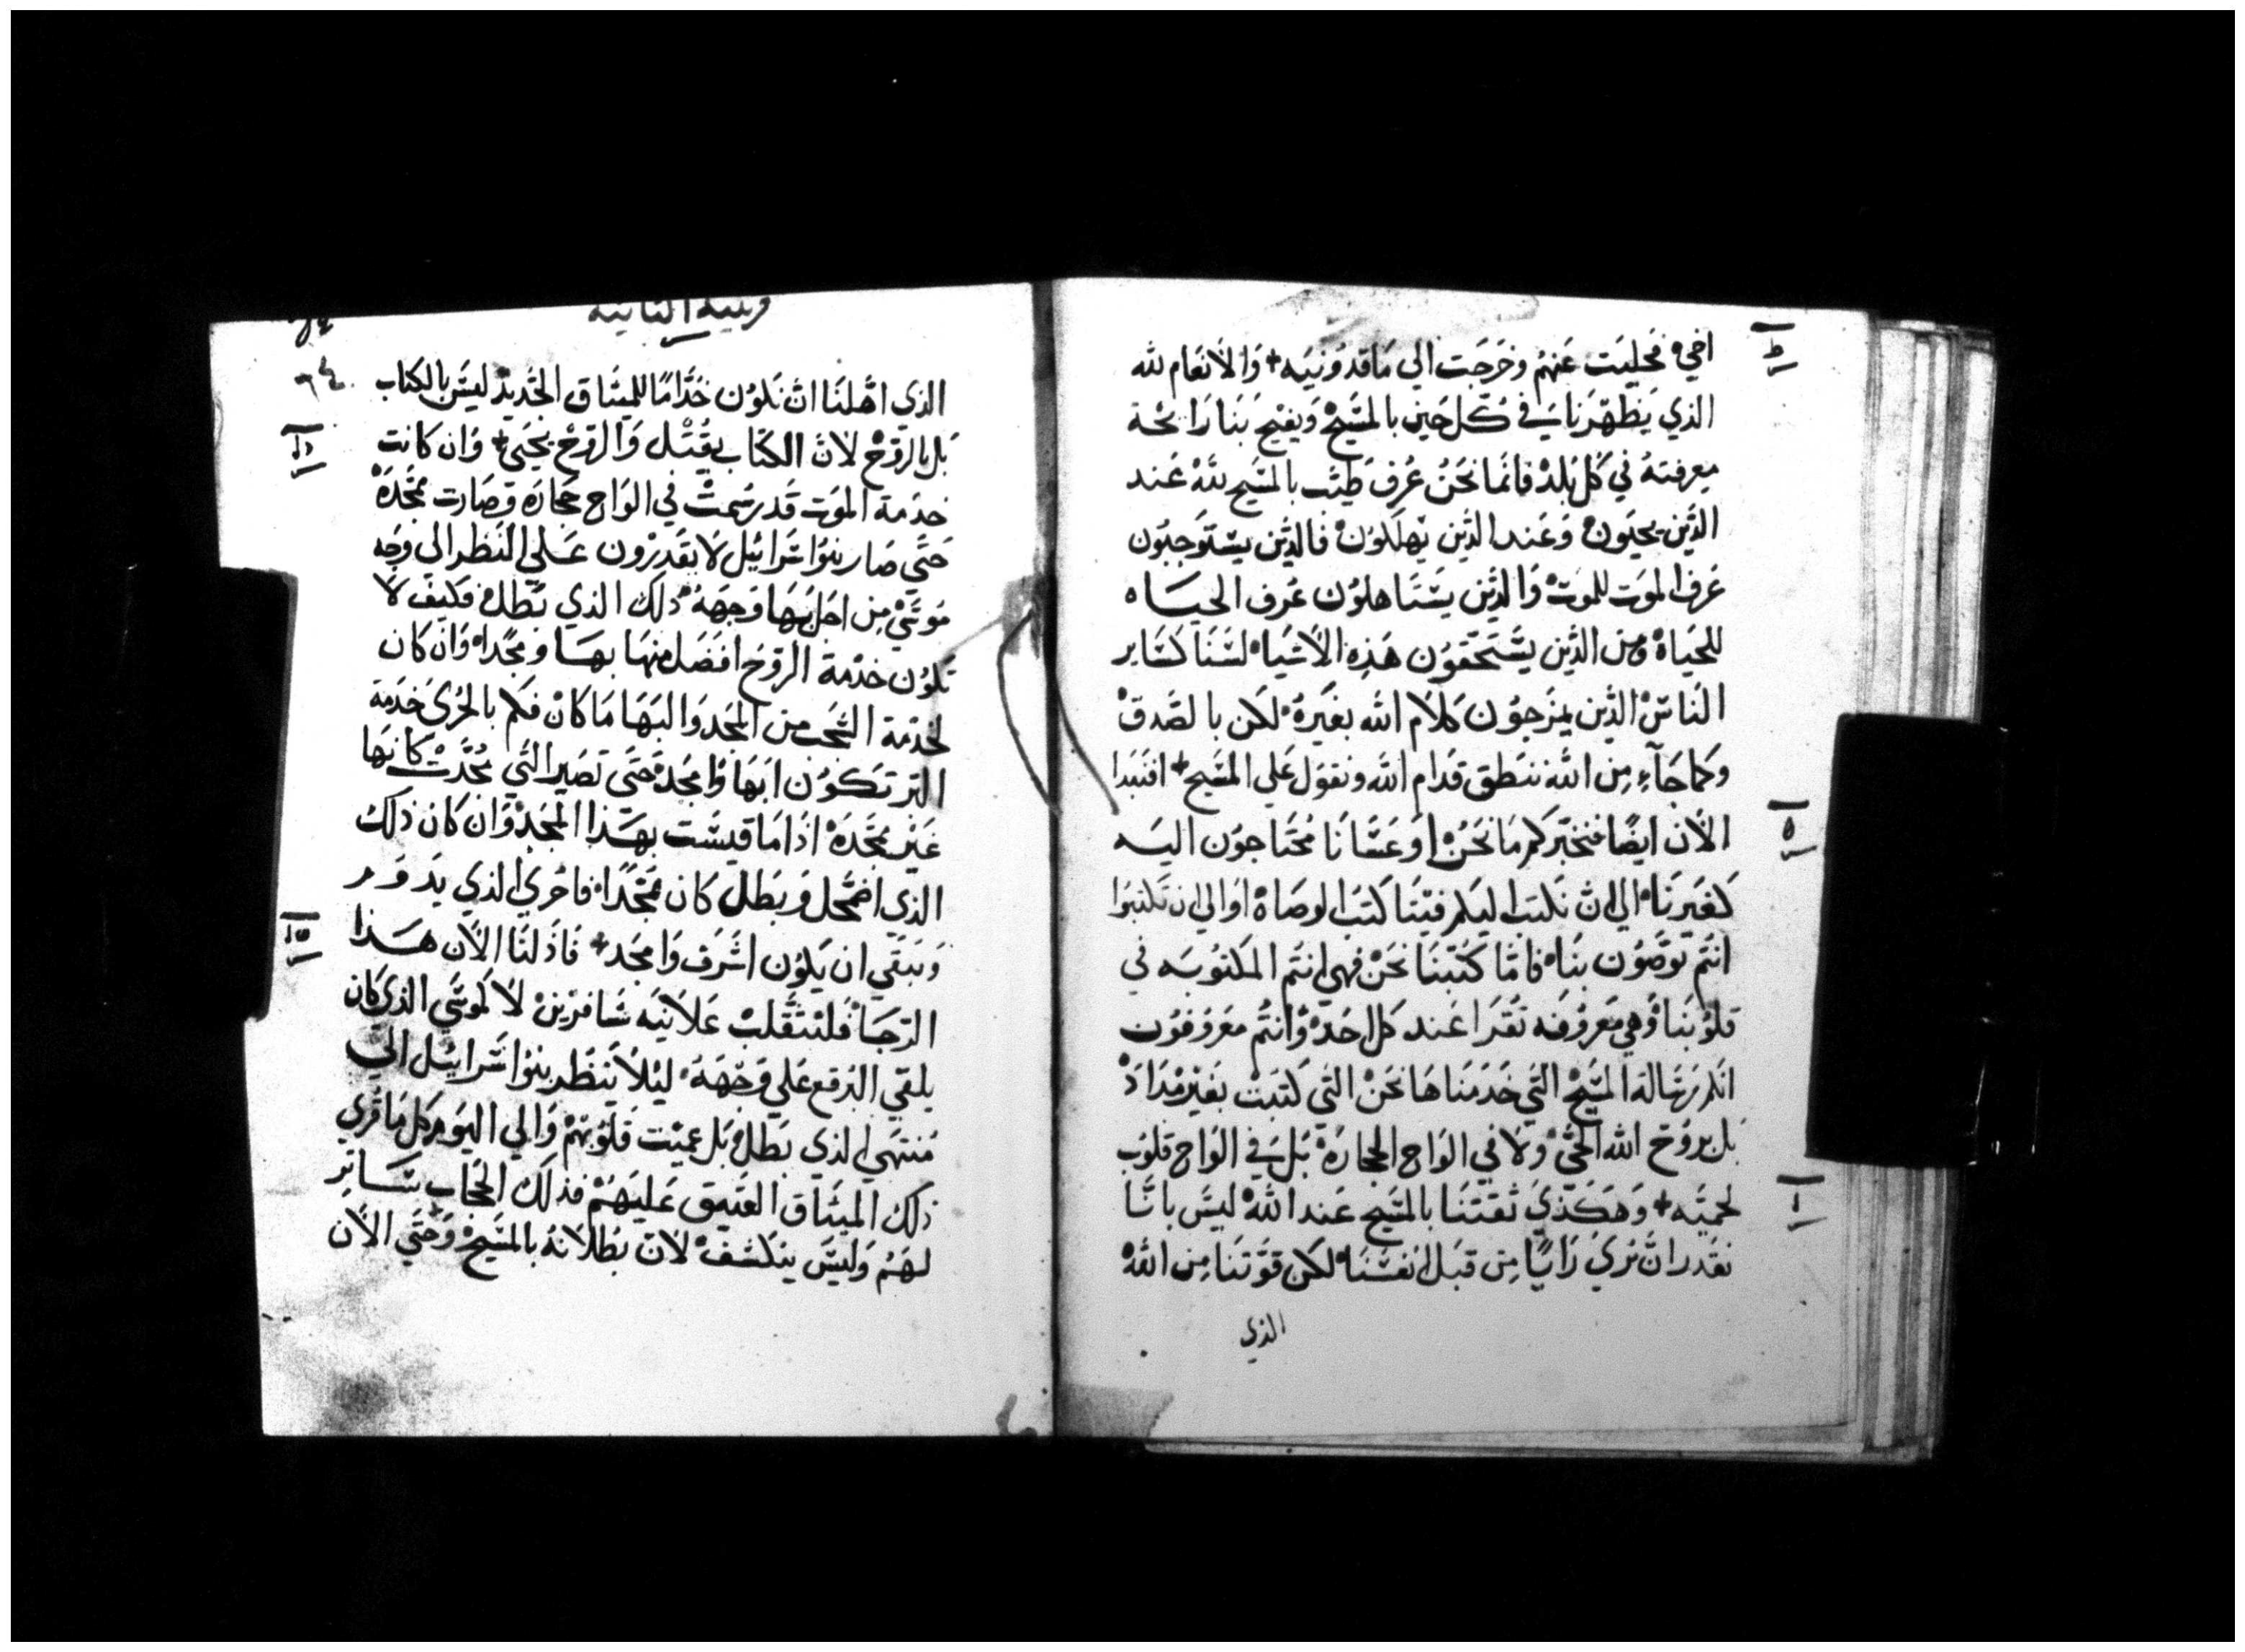 ط
اخي فخليت عنهم وخرجت الي ماقدونيه + والانعام لله
الذي يظهرنا في كل حين بالمسيح ويفيح بنا رائحة
معرفته في كل بلد فانما نحن عرف طيب بالمسيح لله عند
الذين يحيون وعند الذين يهلكون فالذين يستوجبون
عرف الموت للموت والذين يستاهلون عرف الحياه
للحياة ومن الذين يستحقون هذه الاشياء لسنا كساير
الناس الذين يمزجون كلام الله بغيره لكن بالصدق
وكما جاء من الله ننطق قدام الله ونقول علي المسيح + افنبدا
ه
الان ايضا فنخبركم ما نحن او عسانا محتاجون اليه
كغيرنا الي ان نكتب اليكم فينا كتب الوصاة او الي ان تكتبوا
انتم توصون بنا فاما كتبنا نحن فهي انتم المكتوبه في
قلوبنا وهي معروفه تقرا عند كل احد وانتم معروفون
انكم رسالة المسيح التي خدمناها نحن التي كتبت بغير مداد
بل بروح الله الحي ولا في الواح الحجارة بل في الواح قلوب
ا
لحميه + وهكذي ثقتنا بالمسيح عند الله ليس باننا
نقدر ان نري رايا من قبل انفسنا لكن قوتنا من الله
الذي
الثانية
٦٤
الذي اهلنا ان نكون خداما للميثاق الجديد ليس بالكتاب
بل بالروح لان الكتاب يقتل والروح يحيي + وان كانت
خدمة الموت قد رسمت في الواح حجاره وصارت ممجده
حتي صار بنوا اسرائيل لا يقدرون علي النظر الي وجه
موسي من اجل بها وجهه ذلك الذي بطل فكيف لا
تكون خدمة الروح افضل منها بها ومجدا وان كان
لخدمة الشجب من المجد والبها ما كان فكم بالحري خدمة
البر تكون ابها وامجد حتي تصير التي مجدت كانها
غير ممجده اذا ما قيست بهذا المجد وان كان ذلك
الذي اضمحل وبطل كان ممجدا فاحري الذي يدوم
ويبقي ان يكون اشرف وامجد + فاذ لنا الان هذا
الرجا فلنتقلب علانيه سافرين لا كموسي الذي كان
يلقي البرقع علي وجهه ليلا ينظر بنوا اسرائيل الي
منتهي الذي بطل بل عميت قلوبهم والي اليوم كل ما قري
ذلك الميثاق العتيق عليهم فذلك الحجاب ساتر
لهم وليس ينكشف لان بطلانه بالمسيح وحتي الان